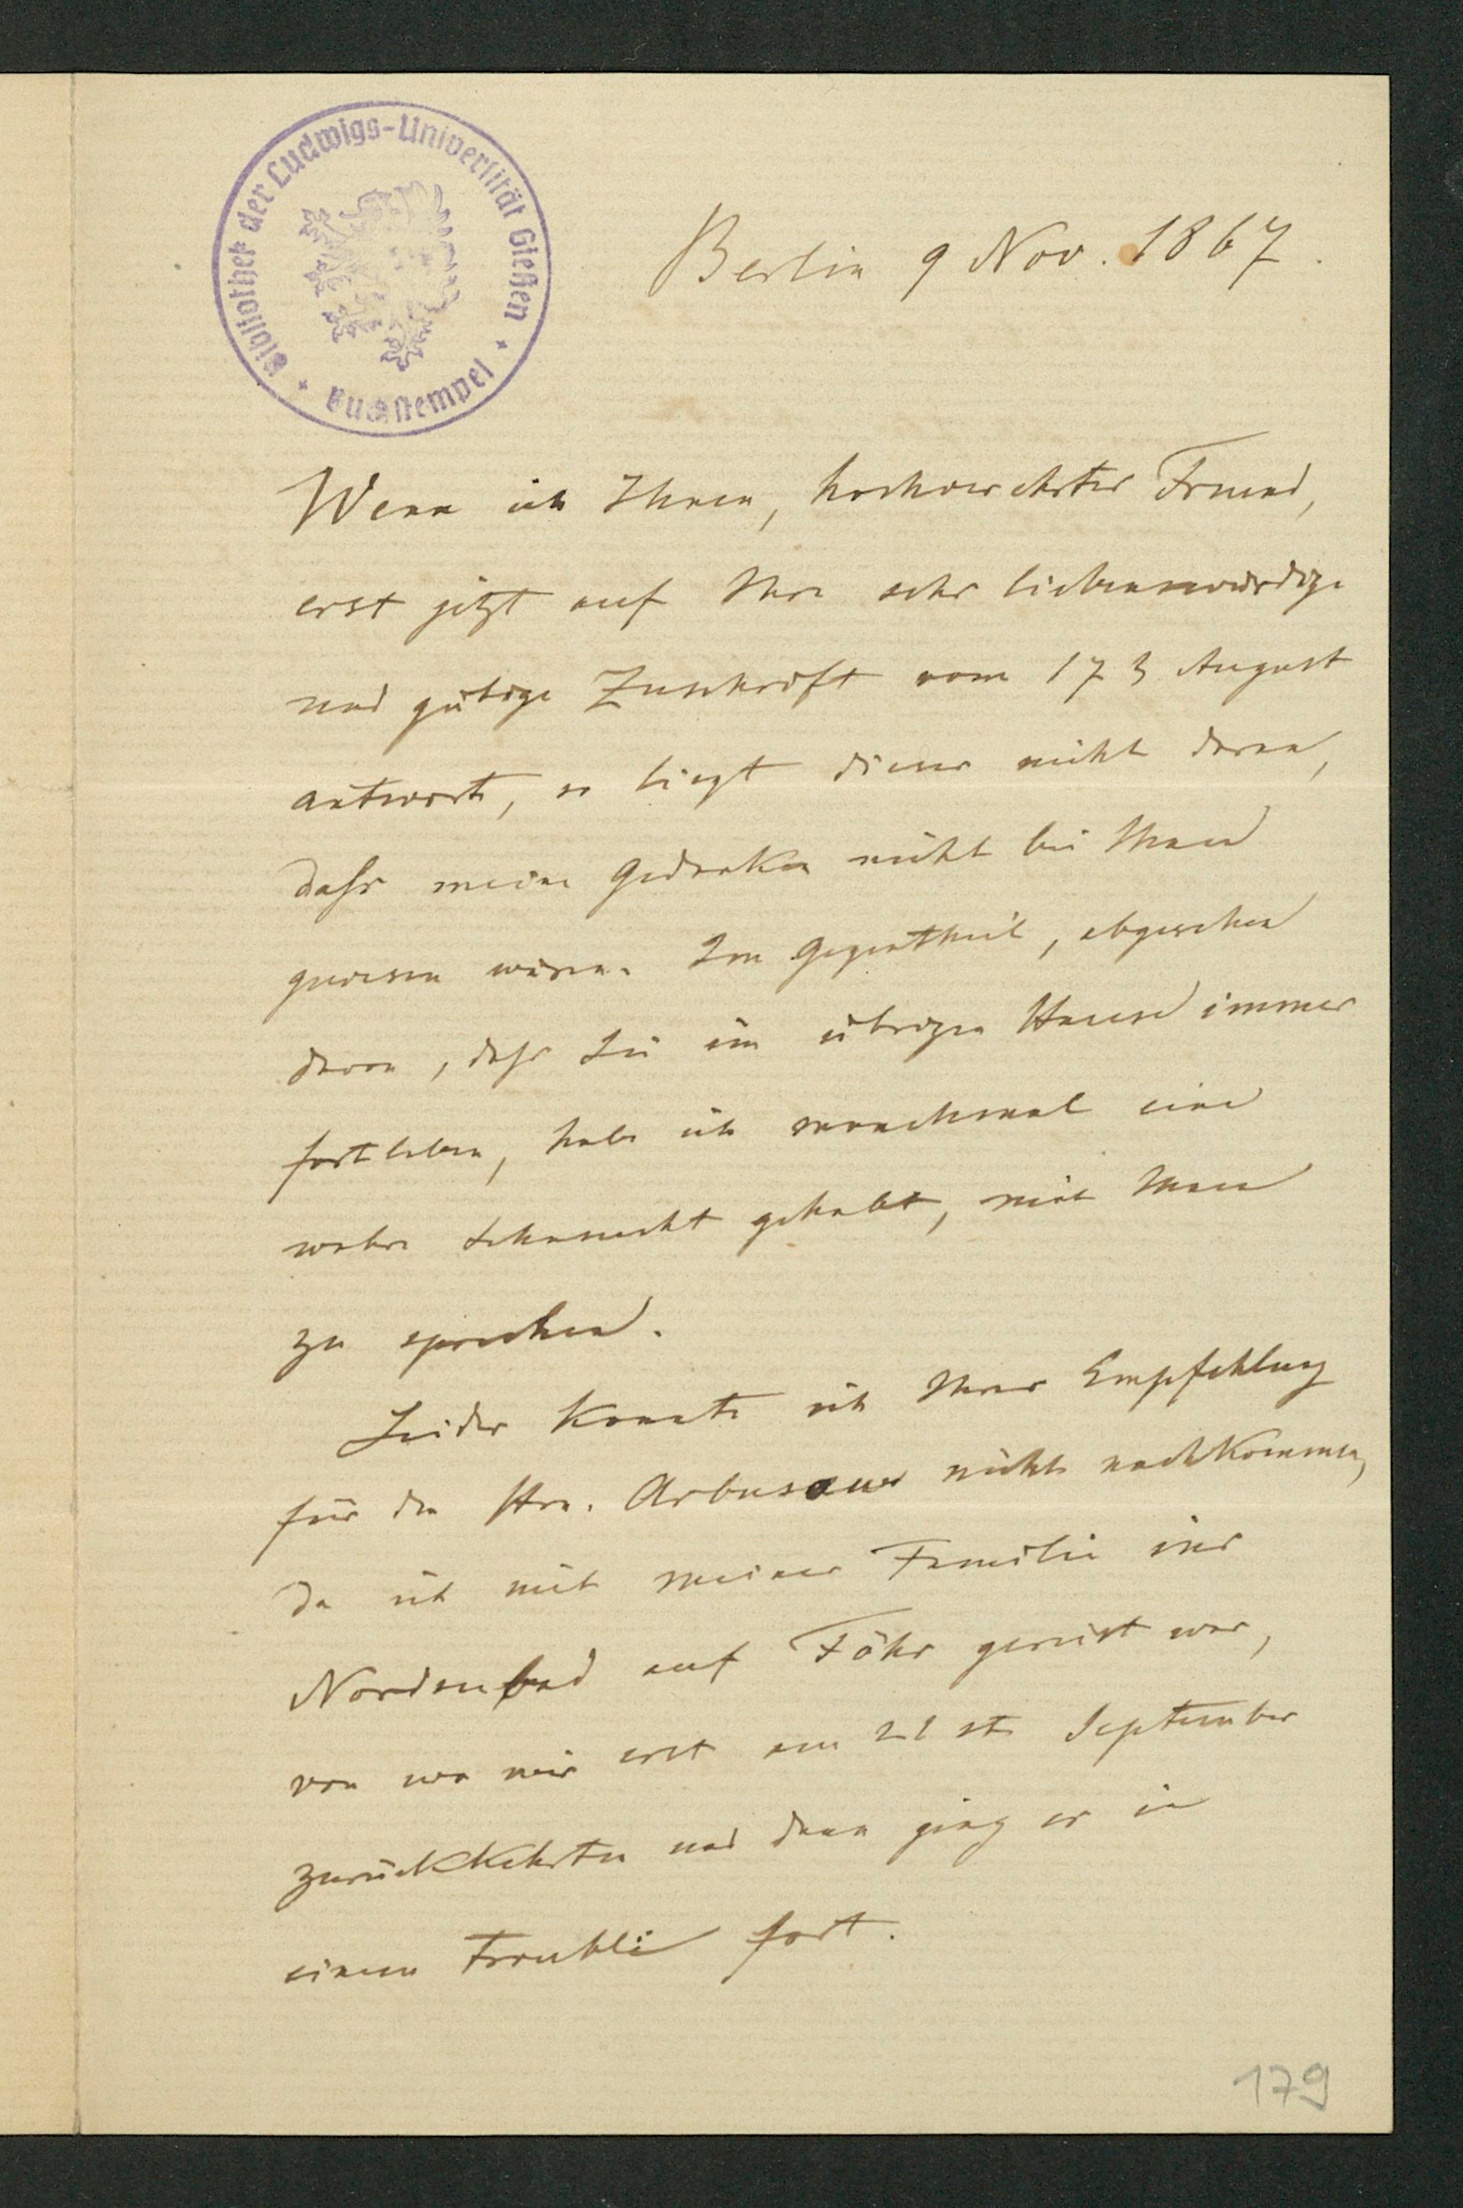 Bibliothek der Ludwigs-Universität Gießen
Buchstempel
Berlin 9 Nov. 1867.
Wenn ich Ihnen, hochverehrter Freund,
erst jetzt auf Ihre sehr liebenswürdige
und gütige Zuschrift vom 17 August
antworte, so liegt dieses nicht daran,
daſs meine Gedanken nicht bei Ihnen
gewesen wären. Im Gegentheil, abgesehen
davon, daſs Sie im übrigen Hause immer
fortleben, habe ich manchmal eine
wahre Sehnsucht gehabt, mit Ihnen
zu sprechen.
Leider konnte ich Ihrer Empfehlung
für den Hrn. nicht nachkommen,
da ich mit meiner Familie ins
Nordseebad auf Föhr gereist war,
von wo wir erst am 21st September
zurückkehrten und dann ging es in
einem Trouble fort.
179